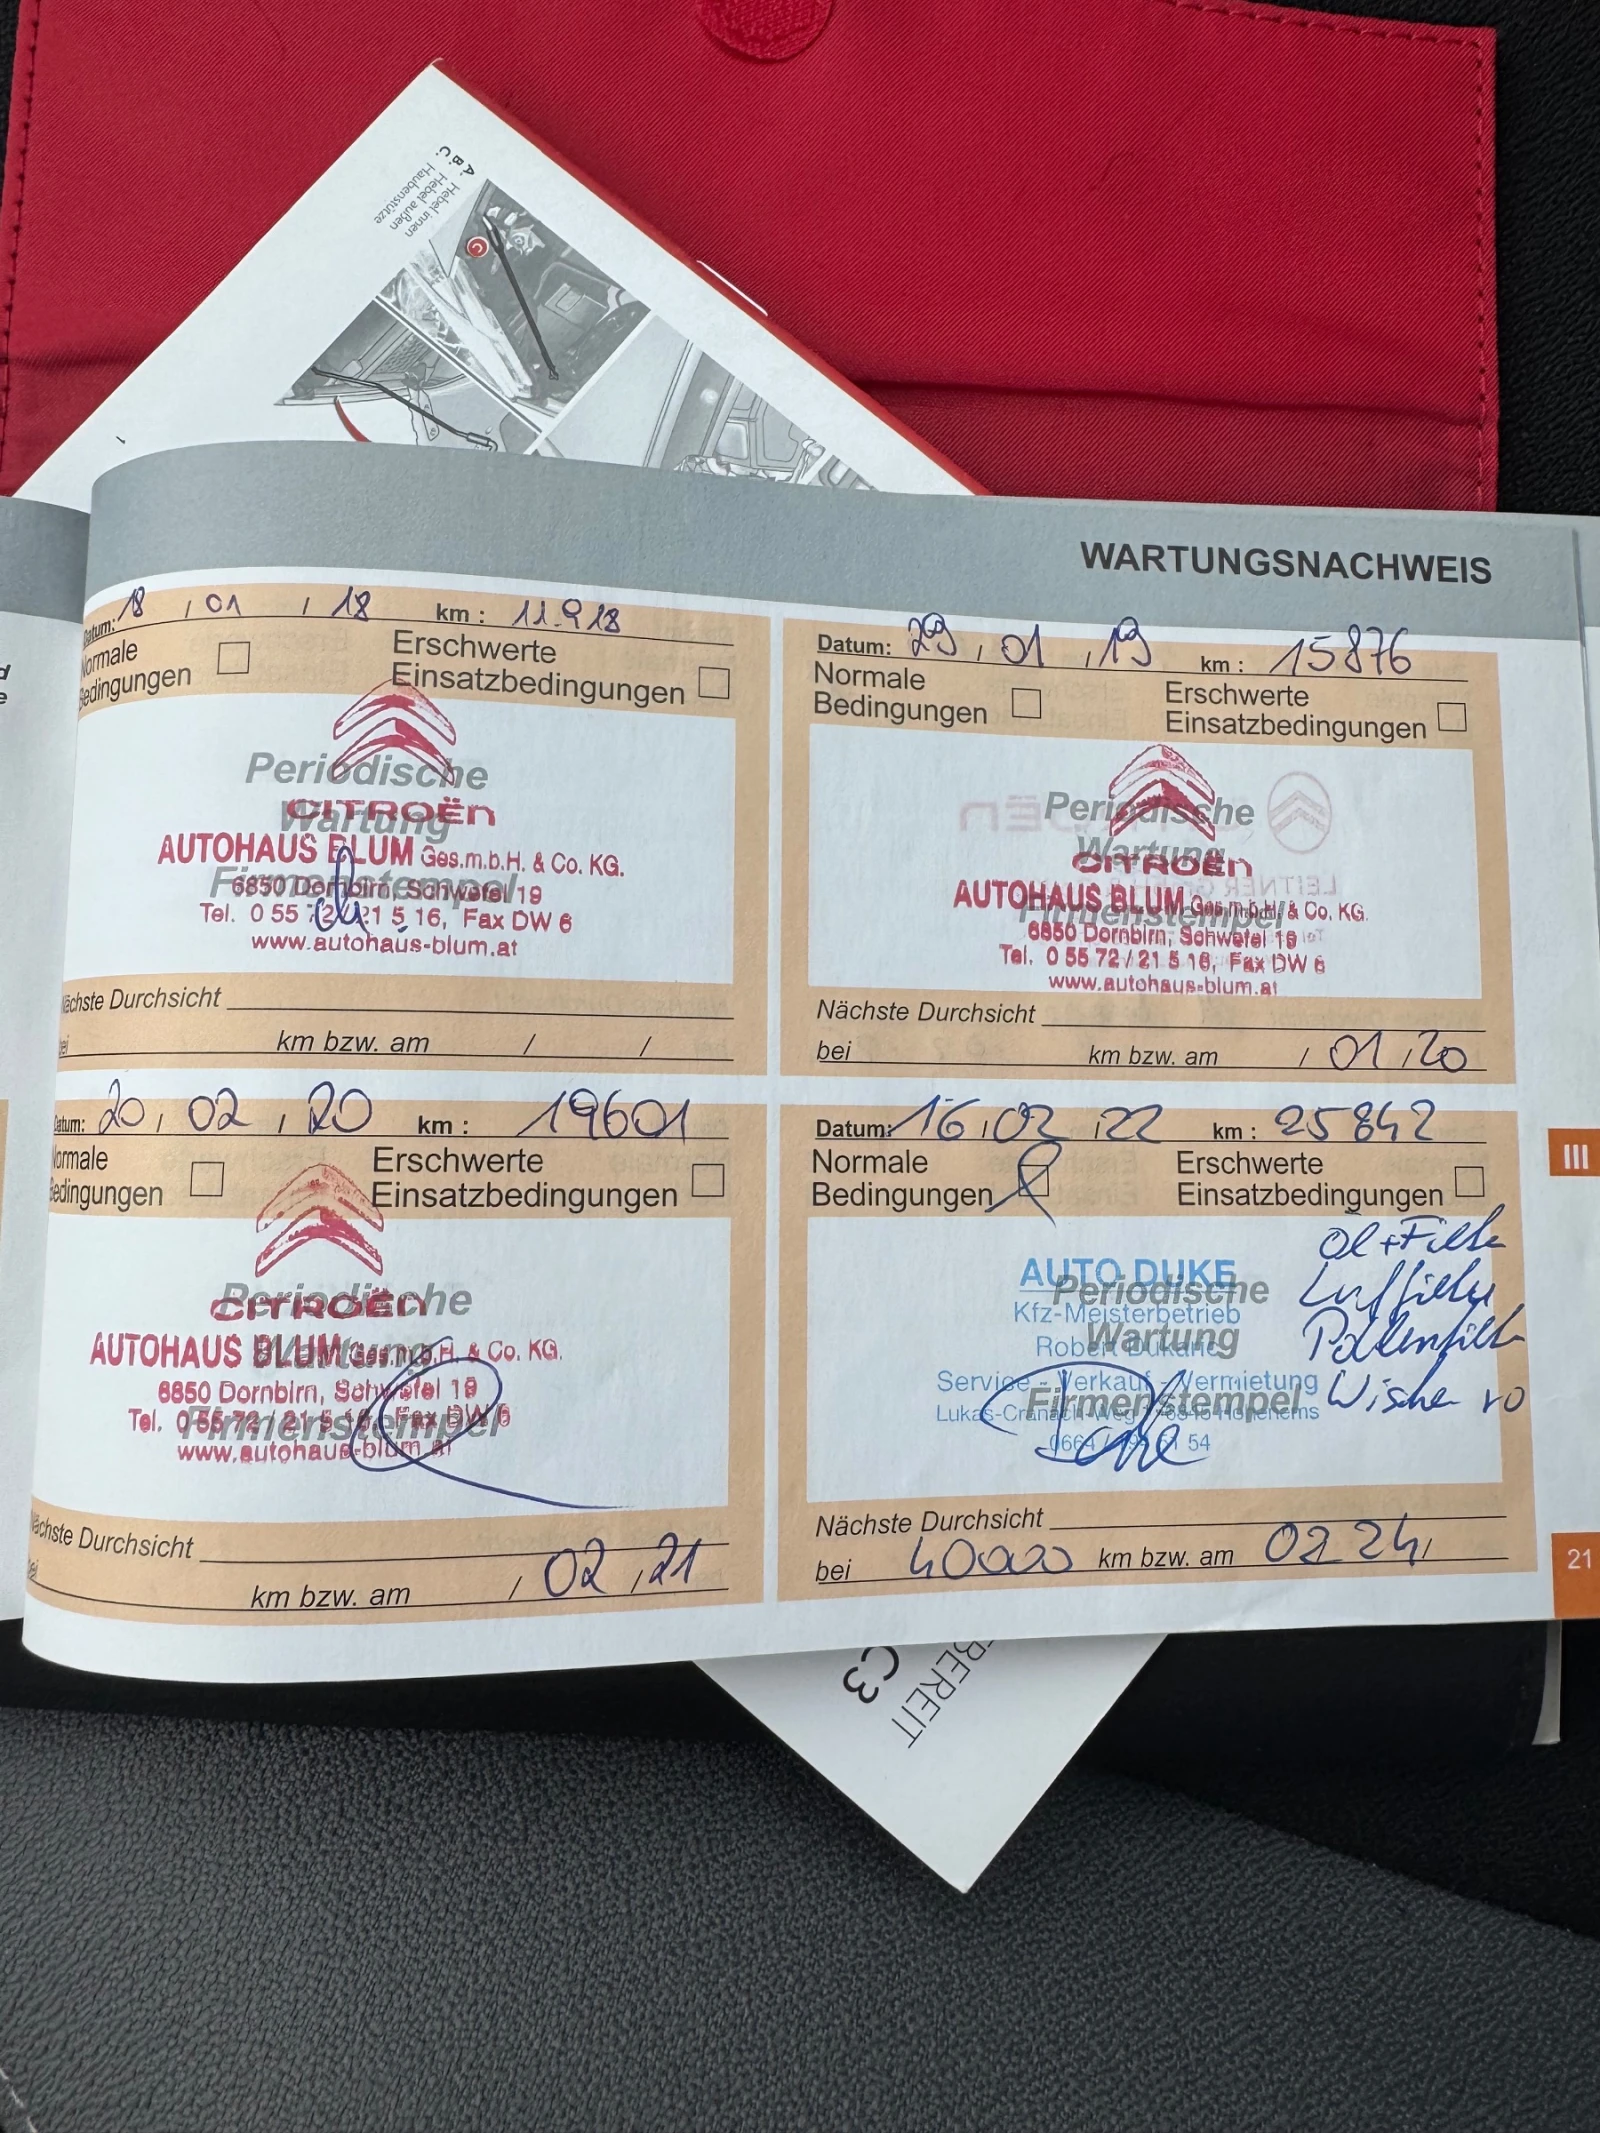 A. Hebel innen
B. Hebel außen
C. Haubenstütze
C
WARTUNGSNACHWEIS
Datum: 18 / 01 / 18 km : 11.918
Normale
Bedingungen
Erschwerte
Einsatzbedingungen
Periodische
Wartung
Firmenstempel
CITROËN
AUTOHAUS BLUM Ges.m.b.H. & Co. KG.
6850 Dornbirn, Schwefel 19
Tel. 0 55 72 / 21 5 16, Fax DW 6
www.autohaus-blum.at
Nächste Durchsicht
bei km bzw. am / /
Datum: 29 / 01 / 19 km : 15876
Normale
Bedingungen
Erschwerte
Einsatzbedingungen
Periodische
Wartung
Firmenstempel
CITROËN
AUTOHAUS BLUM Ges.m.b.H. & Co. KG.
6850 Dornbirn, Schwefel 19
Tel. 0 55 72 / 21 5 16, Fax DW 6
www.autohaus-blum.at
Nächste Durchsicht
bei km bzw. am / 01 / 20
Datum: 20 / 02 / 20 km : 19601
Normale
Bedingungen
Erschwerte
Einsatzbedingungen
Periodische
Wartung
Firmenstempel
CITROËN
AUTOHAUS BLUM Ges.m.b.H. & Co. KG.
6850 Dornbirn, Schwefel 19
Tel. 0 55 72 / 21 5 16, Fax DW 6
www.autohaus-blum.at
Nächste Durchsicht
bei km bzw. am / 02 / 21
Datum: 16 / 02 / 22 km : 25842
Normale
Bedingungen
Erschwerte
Einsatzbedingungen
Periodische
Wartung
Firmenstempel
AUTO DUKE
Kfz-Meisterbetrieb
Robert
Service - Verkauf - Vermietung
Lukas-Cranach-Weg Hohenems
0664 / 54
Öl + Filter
Luftfilter
Pollenfilter
Wischer vo
Nächste Durchsicht
bei 40000 km bzw. am 02 24 /
III
21
BEREIT
C3